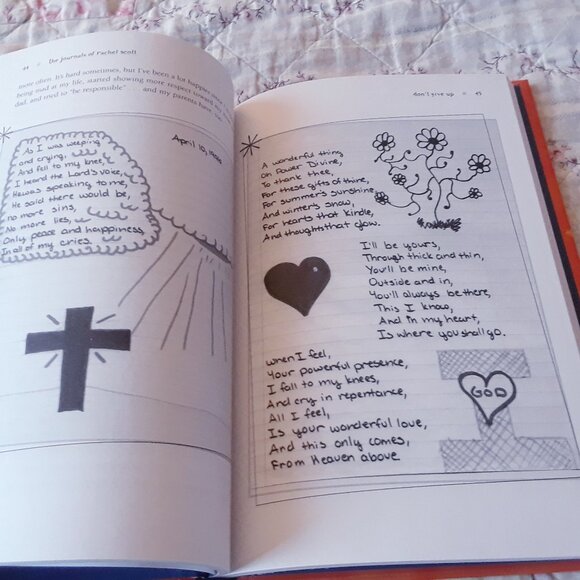 44 * The journals of rachel scott
more often. It's hard sometimes, but I've been a lot happier
being mad at my life, started showing more respect toward my
dad, and tried to "be responsible" . . . and my parents have, too.
April 10, 1998
As I was weeping
and crying,
And fell to my knee,
I heard the Lord's voice,
He was speaking to me,
He said there would be,
no more sins,
No more lies,
Only peace and happiness,
In all of my cries.
don't give up * 45
A wonderful thing,
Oh Power Divine,
To thank thee,
For these gifts of thine,
For summer's sunshine,
And winter's snow,
For hearts that kindle,
And thoughts that glow.
I'll be yours,
Through thick and thin,
You'll be mine,
Outside and in,
You'll always be there,
This I know,
And in my heart,
Is where you shall go.
When I feel,
Your powerful presence,
I fall to my knees,
And cry in repentance,
All I feel,
Is your wonderful love,
And this only comes,
From Heaven above
GOD